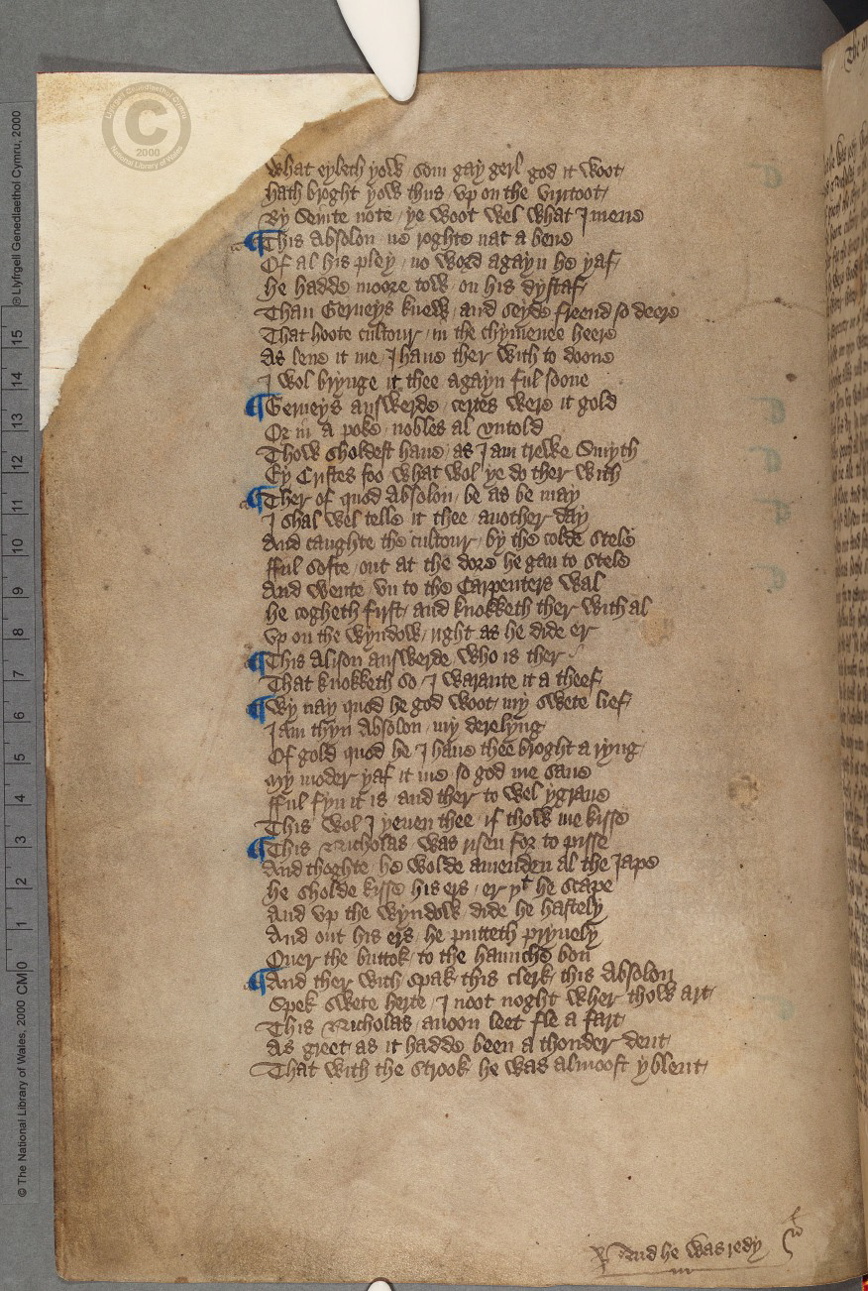 What eyleth yow / som gay gerl god it woot
hath broght yow thus / vp on the viritoot
By Seinte note / ye woot wel what I mene
¶ This Absolon ne roghte nat a bene
Of al his pley / no word agayn he yaf
he hadde moore tow / on his dystaf
Than Gerueys knew / and seyde freend so deere
That hoote cultour / in the chymenee heere
As lene it me / I haue ther with to doone
I wol brynge it thee agayn ful soone
¶ Gerueys answerde / certes were it gold
Or in a poke / nobles al vntold
Thow sholdest haue / as I am trewe Smyth
Ey Cristes foo what wol ye do ther with
¶ Ther of quod Absolon / be as be may
I shal wel telle it thee / another day
And caughte the cultour / by the colde stele
fful softe / out at the dore he gan to stele
And wente / vn to the Carpenters wal
he cogheth first / and knokketh ther with al
vp on the wyndow / right as he dide er
¶ This Alison answerde / who is ther
That knokketh so / I warante it a theef
¶ Wy nay quod he god woot / my swete lief
I am thyn Absolon / my derelyng
Of gold quod he I haue thee broght a ryng
my moder yaf it me / so god me saue
fful fyn it is / and ther to wel ygraue
This wol I yeuen thee / if thow me kisse
¶ This Nicholas was risen for to pisse
And thoghte / he wolde amenden al the Iape
he sholde kisse his ers / er yt he scape
And vp the wyndow / dide he hastely
And out his ers / he putteth pryuely
Ouer the buttok / to the haunche bon
¶ And ther with spak this clerk / this Absolon
Spek swete herte / I noot noght wher thow art
This Nicholas / anoon leet fle a fart
As greet / as it hadde been a thonder dent
That with the strook he was almoost yblent
And he was redy
Llyfrgell Genedlaethol Cymru
C
2000
National Library of Wales
© Llyfrgell Genedlaethol Cymru, 2000
15
14
13
12
11
10
9
8
7
6
5
4
3
2
1
CM 0
© The National Library of Wales, 2000